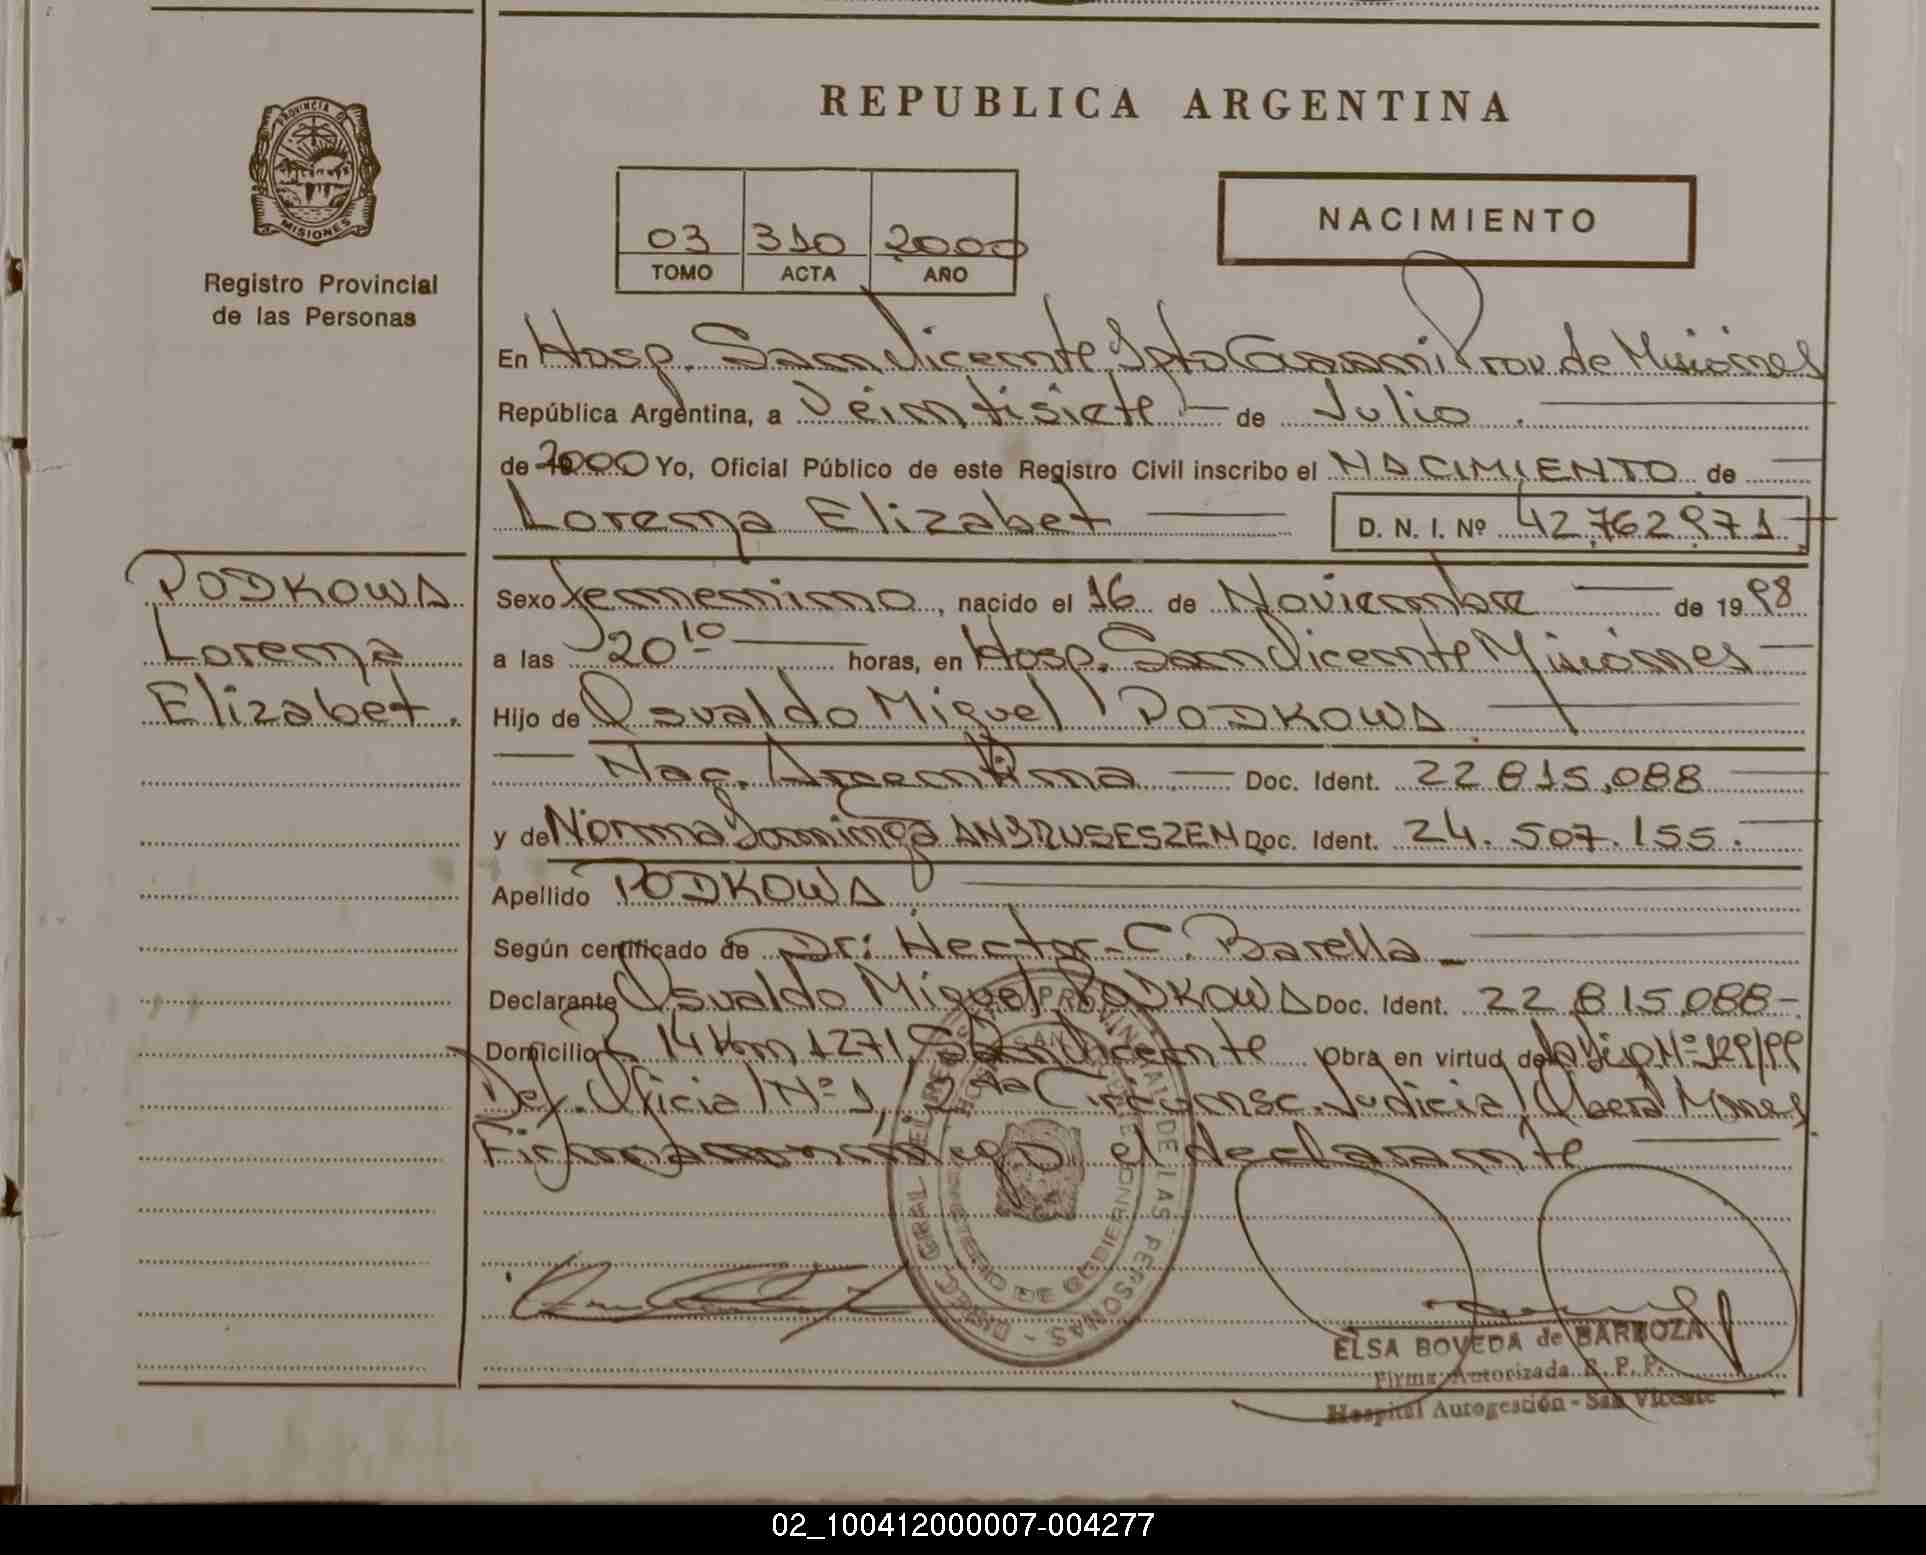 REPUBLICA ARGENTINA
PROVINCIA DE
MISIONES
Registro Provincial
de las Personas
03 310 2000
TOMO ACTA AÑO
NACIMIENTO
En Hosp. San Vicente, Dpto Guaraní Prov de Misiones
República Argentina, a Veintisiete de Julio
de 2000 Yo, Oficial Público de este Registro Civil inscribo el NACIMIENTO de
Lorena Elizabet D. N. I. Nº 42.762.971
PODKOWA
Lorena
Elizabet.
Sexo femenino, nacido el 16 de Noviembre de 1998
a las 20 10 horas, en Hosp. San Vicente Misiones
Hijo de Osvaldo Miguel PODKOWA
Nac. Argentina Doc. Ident. 22.815.088
y de Norma Dominga ANDRUSESZEN Doc. Ident. 24.507.155.
Apellido PODKOWA
Según certificado de Dr: Hector C. Barella
Declarante Osvaldo Miguel PODKOWA Doc. Ident. 22.815.088
Domicilio R. 14 Km 1271, San Vicente Obra en virtud de la Disp. Nº 129/99
Def. Oficial Nº 1, 2da Circunsc. Judicial Oberá Mnes
Firma el declarante
DIREC. GRAL. DEL REGISTRO PROVINCIAL DE LAS PERSONAS
MINISTERIO DE GOBIERNO
ELSA BOVEDA de BARBOZA
Firma Autorizada R. P. P.
Hospital Autogestión - San Vicente
02_100412000007-004277